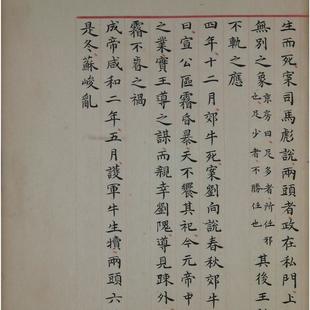 生而死案司馬彪說兩頭者政在私門上
無別之象京房曰足多者所任邪
也足少者不勝任也其後王
不軌之應
四年十二月郊牛死案劉向說春秋郊牛
曰宣公區霿昏暴天不饗其祀今元帝中
之業實王導之謀而親幸劉隗導見踈外
霿不睿之禍
成帝咸和二年五月護軍牛生犢兩頭六
是冬蘇峻亂